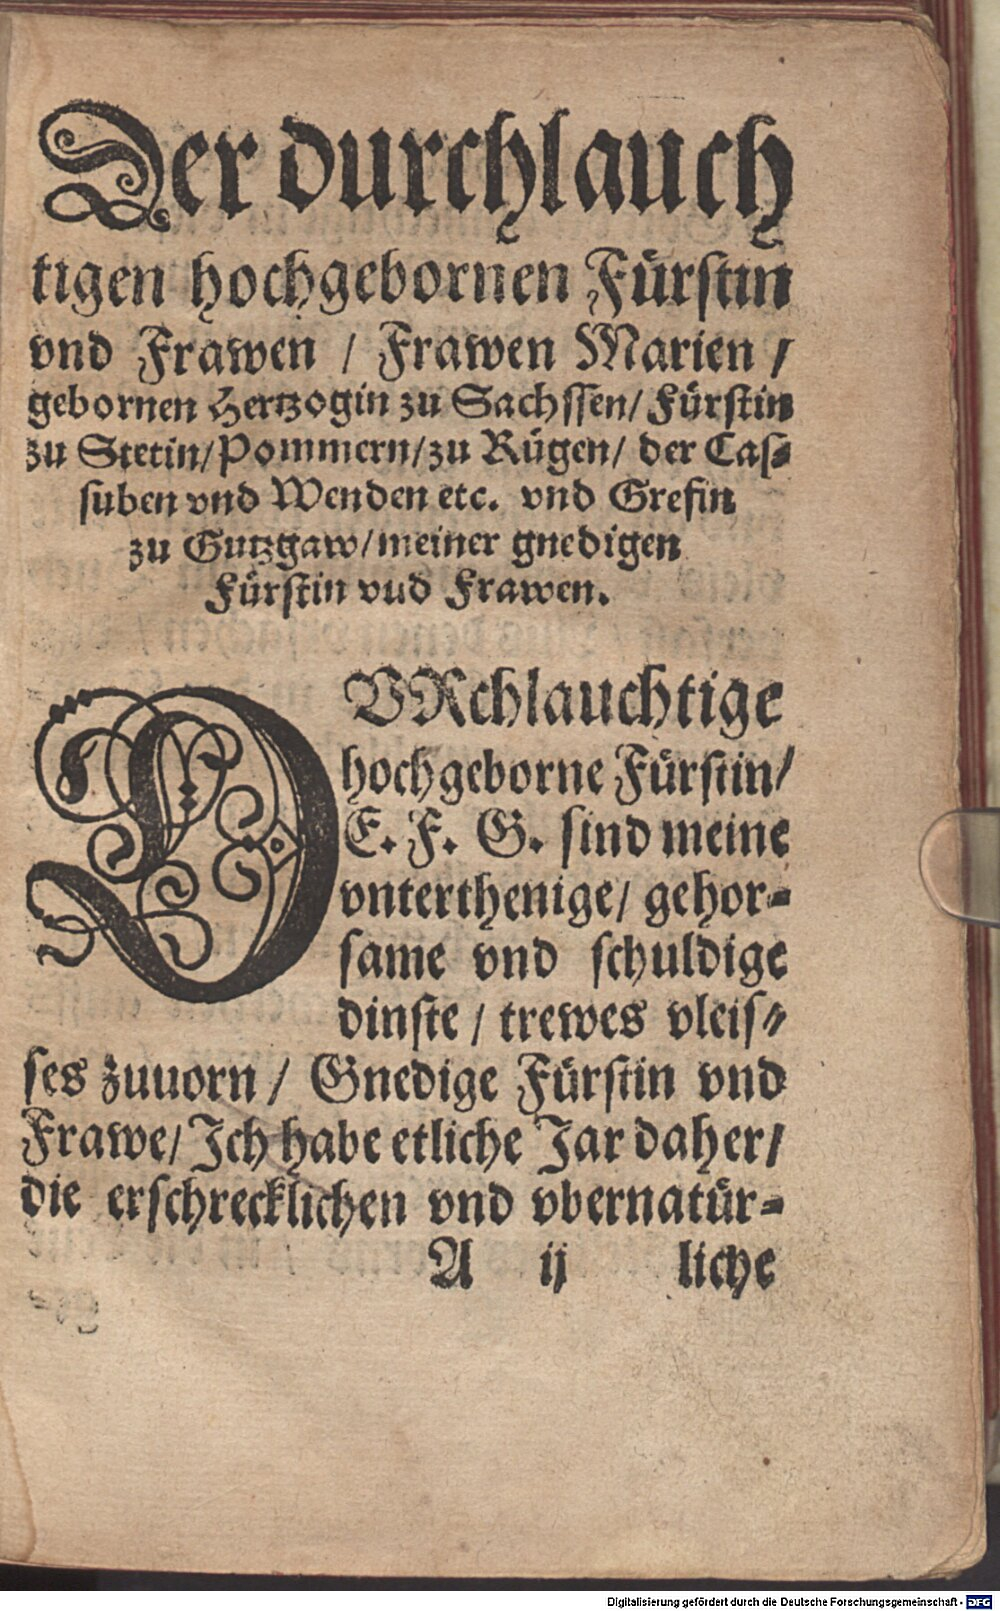 Der durchlauch
tigen hochgebornen Fürstin
vnd Frawen / Frawen Marien /
gebornen Hertzogin zu Sachssen / Fürstin
zu Stetin / Pommern / zu Rügen / der Cas-
suben vnd Wenden etc. vnd Grefin
zu Gutzgaw / meiner gnedigen
Fürstin vud Frawen.
DVRchlauchtige
hochgeborne Fürstin /
E. F. G. sind meine
vnterthenige / gehor-
same vnd schuldige
dinste / trewes vleis-
ses zuuorn / Gnedige Fürstin vnd
Frawe / Ich habe etliche Jar daher /
die erschrecklichen vnd vbernatür-
A ij liche
Digitalisierung gefördert durch die Deutsche Forschungsgemeinschaft - DFG